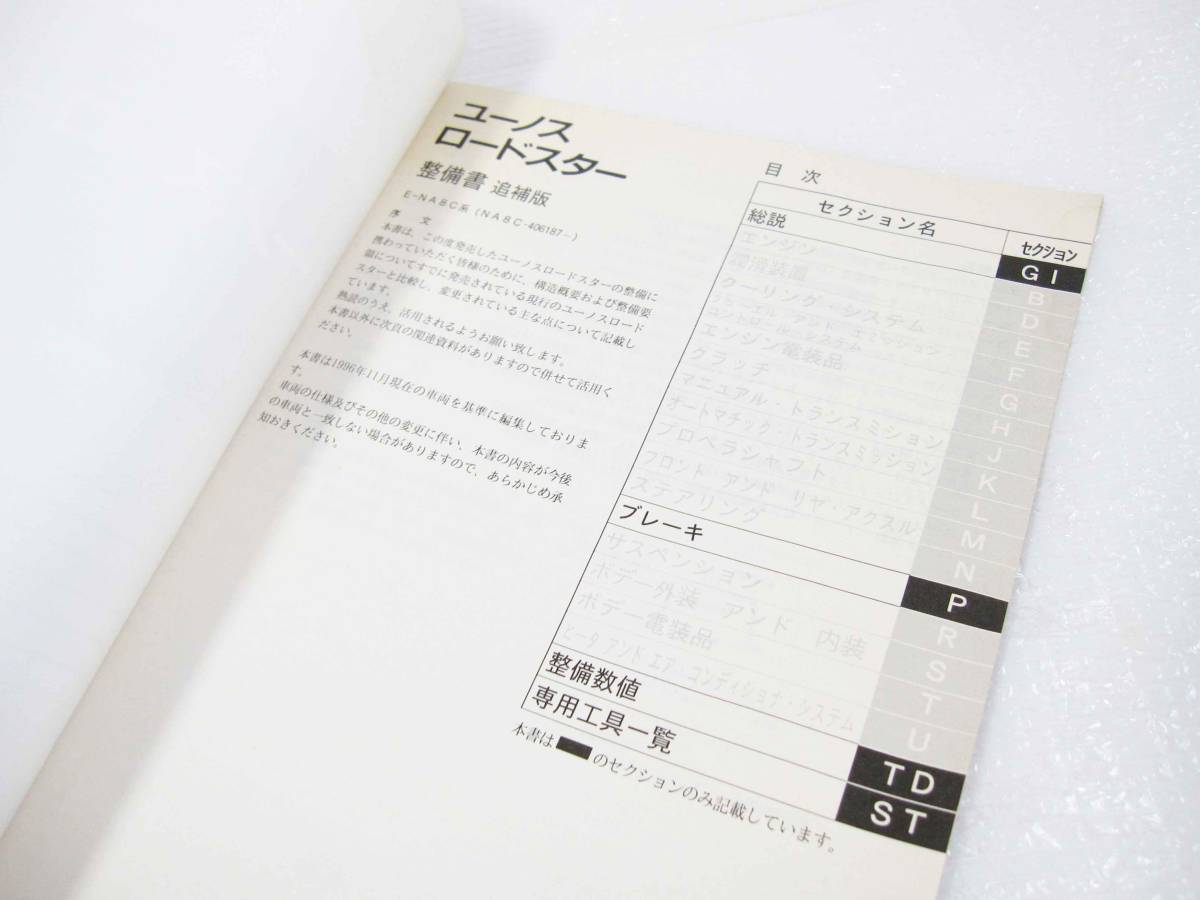 ユーノス
ロードスター
整備書 追補版
E-NA8C系 (NA8C-406187~)
序 文
本書は、この度発売したユーノスロードスターの整備に
携わっていただく皆様のために、構造概要および整備要
領についてすでに発売されている現行のユーノスロード
スターと比較し、変更されている主な点について記載し
ています。
熟読のうえ、活用されるようお願い致します。
本書以外に次頁の関連資料がありますので併せて活用く
ださい。
本書は1996年11月現在の車両を基準に編集しておりま
す。
車両の仕様及びその他の変更に伴い、本書の内容が今後
の車両と一致しない場合がありますので、あらかじめ承
知おきください。
目 次
セクション名 セクション
総説 GI
エンジン B
潤滑装置 D
クーリング・システム E
コントロール・システム F
エンジン電装品 G
クラッチ H
マニュアル・トランスミション J
オートマチック・トランスミッション K
プロペラシャフト L
フロント アンド リヤ・アクスル M
ステアリング N
ブレーキ P
サスペンション R
ボデー外装 アンド 内装 S
ボデー電装品 T
ヒータ アンド エア・コンディショナ・システム U
整備数値 TD
専用工具一覧 ST
本書は のセクションのみ記載しています。